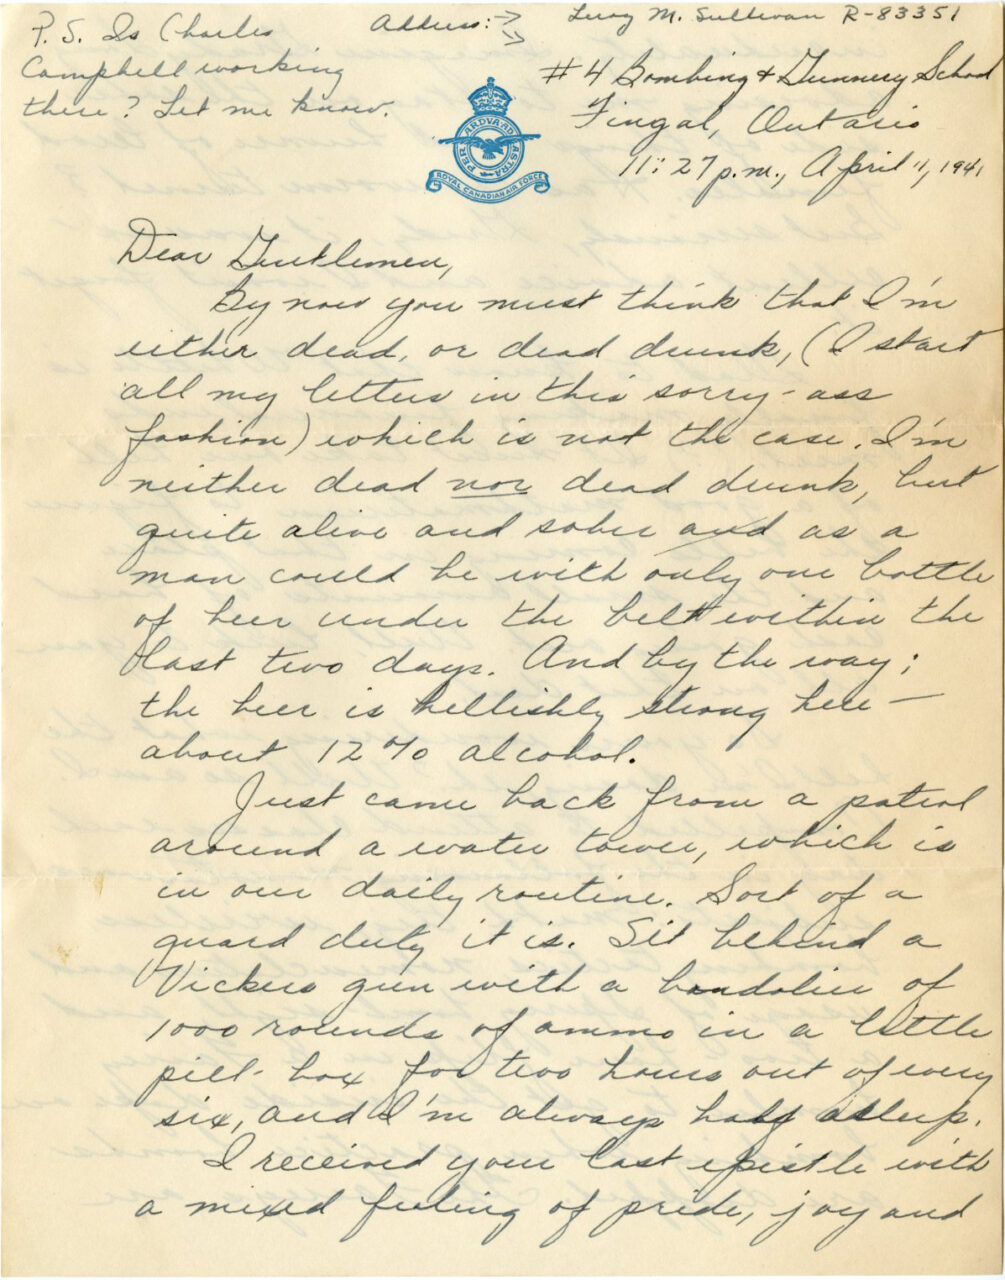 P.S. Is Charles
Campbell working
there? Let me know.
Address:→ Leroy M. Sullivan R-83351
#4 Bombing & Gunnery School
Fingal, Ontario
11:27 p.m., April 11, 1941
PER ARDVA AD ASTRA
ROYAL CANADIAN AIR FORCE
Dear Gentlemen,
By now you must think that I'm
either dead, or dead drunk, (I start
all my letters in this sorry-ass
fashion) which is not the case. I'm
neither dead nor dead drunk, but
quite alive and sober and as a
man could be with only one bottle
of beer under the belt within the
last two days. And by the way;
the beer is hellishly strong here—
about 12% alcohol.
Just came back from a patrol
around a water tower, which is
in our daily routine. Sort of a
guard duty it is. Sit behind a
Vickers gun with a bandolier of
1000 rounds of ammo in a little
pill-box for two hours out of every
six, and I'm always half asleep.
I received your last epistle with
a mixed feeling of pride, joy and